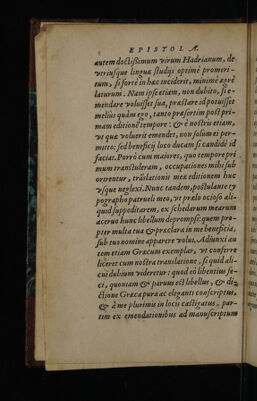 EPISTOLA.
autem doctißimum virum Hadrianum, de
vtriusque linguæ studijs optimè promeri-
tum, si fortè in hæc inciderit, minimè ægrè
laturum. Nam ipse etiam, non dubito, si e-
mendare voluisset sua, præstare id potuisset
meliùs quàm ego, tanto præsertim post pri-
mam editionem tempore: & è nostris etiam,
vt quæ voluerit emendet, non solùm ei per-
mitto: sed beneficij loco ducam si candidè id
facias. Porrò cum maiores, quo tempore pri
mum transtuleram, occupationes mihi sub
orirentur, trãslationis meæ editionem huc
vsque neglexi. Nunc tandem, postulante ty
pographo patrueli meo, vt prælo ocioso ali-
quid suppeditarem, ex schedarum mearum
aceruo hunc libellum deprompsi: quem pro-
pter multa tua & præclara in me beneficia,
sub tuo nomine apparere volui. Adiunxi au
tem etiam Græcum exemplar, vt conferre
liceret cum nostra translatione, si quid ali-
cui dubium videretur: quod eò libentius fe-
ci, quoniam & paruus est libellus, & di-
ctione Græca pura ac eleganti conscriptus,
& à me plurimis in locis castigatus, par-
tim ex emendationibus ad manuscriptum